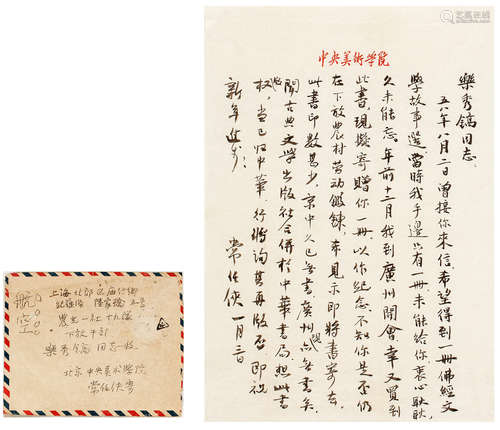 中央美術學院
樂秀鎬同志:
五八年八月二日曾接你來信,希望得到一冊佛經文
學故事選,當時我手邊只有一冊未能給你,衷心耿耿,
久未能忘。年前十二月我到廣州開會,幸又買到
此書,現擬寄贈你一冊以作紀念。不知你是否仍
在下放農村劳动鍛鍊,希見示即將書寄去。
此書印數甚少,京中久已無書,廣州也無書矣。
聞古典文學出版社合併於中華書局,想此書
权,当已归中華,行將詢其再版否?即祝
新年進步!
常任俠 一月三日
航空
上海北郊
农业一社十九队
下放干部
樂秀鎬 同志收
北京 中央美术学院
常任侠寄